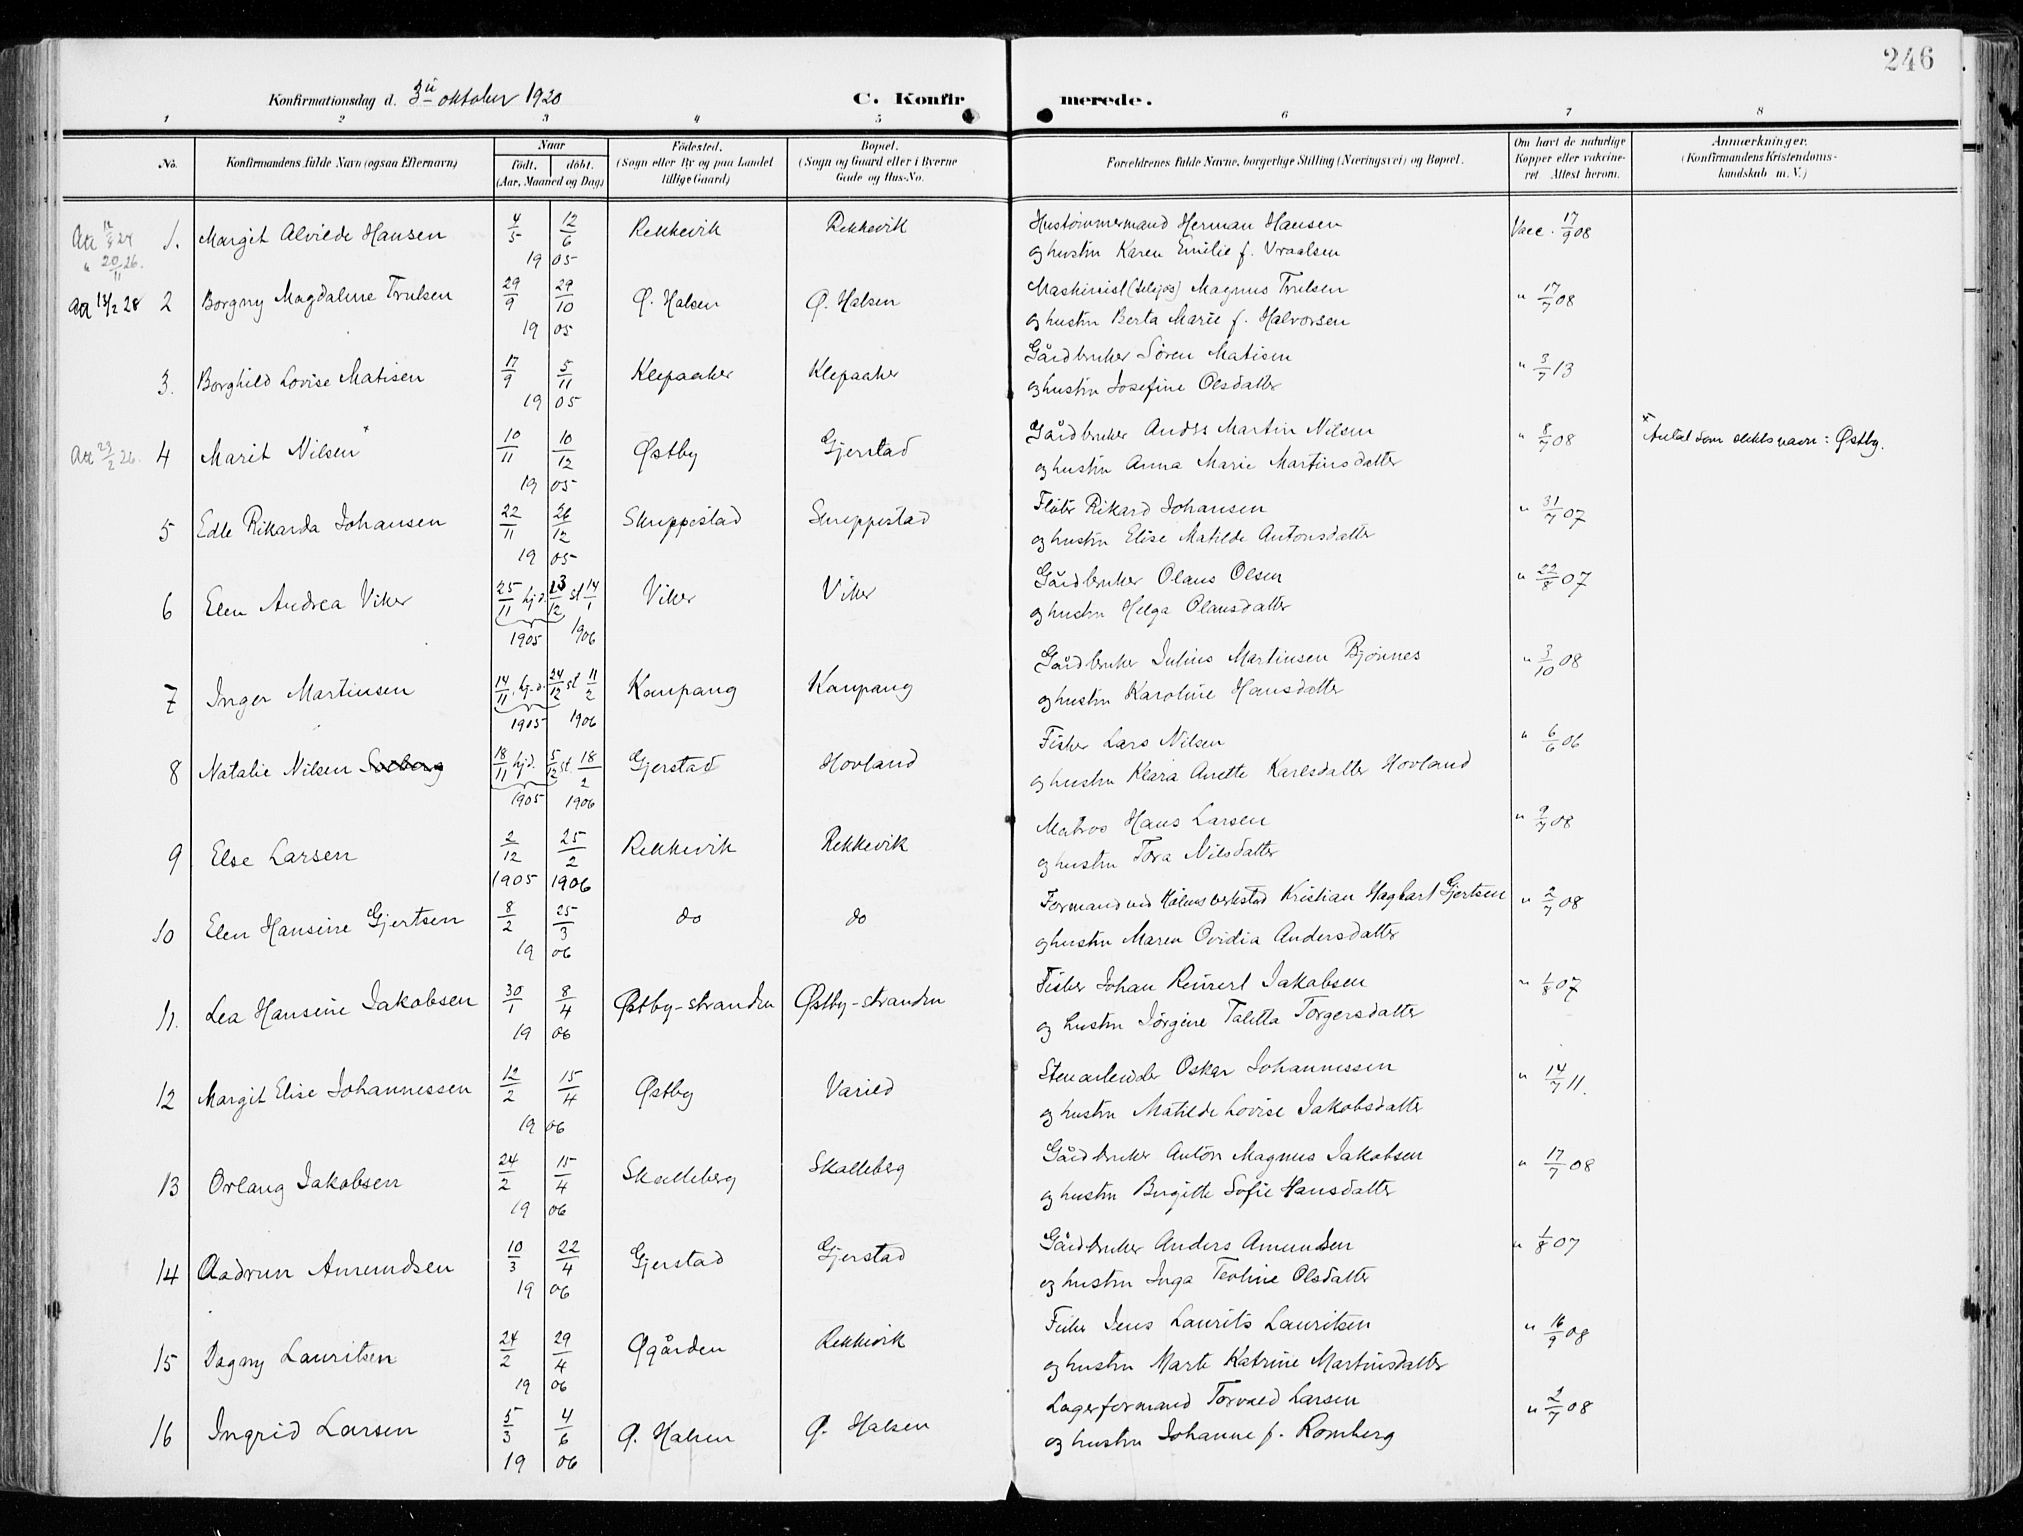 246
Konfirmationsdag d. 3die oktober 1920
C. Konfirmerede.
1 2 3 4 5 6 7 8
No.
Konfirmandens fulde Navn (ogsaa Efternavn)
Naar
født. døbt.
(Aar, Maaned og Dag)
Fødested.
(Sogn eller By og paa Landet
tillige Gaard)
Bopæl.
(Sogn og Gaard eller i Byerne
Gade og Hus-No.
Forældrenes fulde Navne, borgerlige Stilling (Næringsvei) og Bopæl.
Om havt de naturlige
Kopper eller vakcine-
ret. Attest herom.
Anmærkninger.
(Konfirmandens Kristendoms-
kundskab m. V.)
1. Margit Alvilde Hansen 4/5 12/6 Rekkevik Rekkevik Hustømmermand Herman Hansen Vacc. 17/9 08
19 05 og hustru Karen Emilie f. Vraalsen
20/11 26.
Att 13/2 28 2 Borgny Magdalene Trulsen 29/9 29/10 Ø. Halsen Ø. Halsen Maskinist (tilsjøs) Magnus Trulsen " 17/7 08
19 05 og hustru Berta Marie f. Halvorsen
3. Borghild Lovise Matisen 17/9 5/11 Klepaaker Klepaaker Gårdbruker Søren Matisen " 3/7 13
19 05 og hustru Josefine Olsdatter
Att 23/2 26. 4 Marit Nilsen* 10/11 10/12 Østby Gjerstad Gårdbruker Anders Martin Nilsen " 8/7 08 * Antat som slektsnavn: Østby.
19 05 og hustru Anna Marie Martinsdatter
5 Edle Rikarda Johansen 22/11 26/12 Skreppestad Skreppestad Fløter Rikard Johansen " 31/7 07
19 05 og hustru Elise Matilde Antonsdatter
6 Elen Andrea Viker 25/11 hj.d. 13/12 st 14/1 Viker Viker Gårdbruker Olaus Olsen " 22/8 07
1905 1906 og hustru Helga Olausdatter
7 Inger Martinsen 14/11 hj.d. 24/12 st 11/2 Kaupang Kaupang Gårdbruker Julius Martinsen Bjønnes " 3/10 08
1905 1906 og hustru Karoline Hansdatter
8 Natalie Nilsen 18/11 hj.d. 5/12 st. 18/2 Gjerstad Hovland Fisker Lars Nilsen " 6/6 06
1905 1906 og hustru Klara Anette Karlsdatter Hovland
9 Else Larsen 2/12 25/2 Rekkevik Rekkevik Matros Hans Larsen " 9/7 08
1905 1906 og hustru Tora Nilsdatter
10 Elen Hansine Gjertsen 8/2 25/3 do do Formand ved Kålensverksted Kristian Hagbart Gjertsen " 2/7 08
19 06 og hustru Maren Ovidia Andersdatter
11. Lea Hansine Jakobsen 30/1 8/4 Østby-stranden Østby-stranden Fisker Johan Reinert Jakobsen " 1/8 07
19 06 og hustru Jørgine Taletta Torgersdatter
12 Margit Elise Johannessen 12/2 15/4 Østby Varild Stenarbeider Oskar Johannessen " 14/7 11.
19 06 og hustru Matilde Lovise Jakobsdatter
13 Orlaug Jakobsen 24/2 15/4 Skalleberg Skalleberg Gårdbruker Anton Magnus Jakobsen " 17/7 08
19 06 og hustru Birgitte Sofie Hansdatter
14 Aadrun Amundsen 10/3 22/4 Gjerstad Gjerstad Gårdbruker Anders Amundsen " 1/8 07
19 06 og hustru Inga Teoline Olsdatter
15 Dagny Lauritsen 24/2 29/4 Øgården Rekkevik Fisker Jens Laurits Lauritsen " 16/9 08
19 06 og hustru Marte Katrine Martinsdatter
16 Ingrid Larsen 5/3 4/6 Ø. Halsen Ø. Halsen Lagerformand Torvald Larsen " 2/7 08
19 06 og hustru Johanne f. Romberg